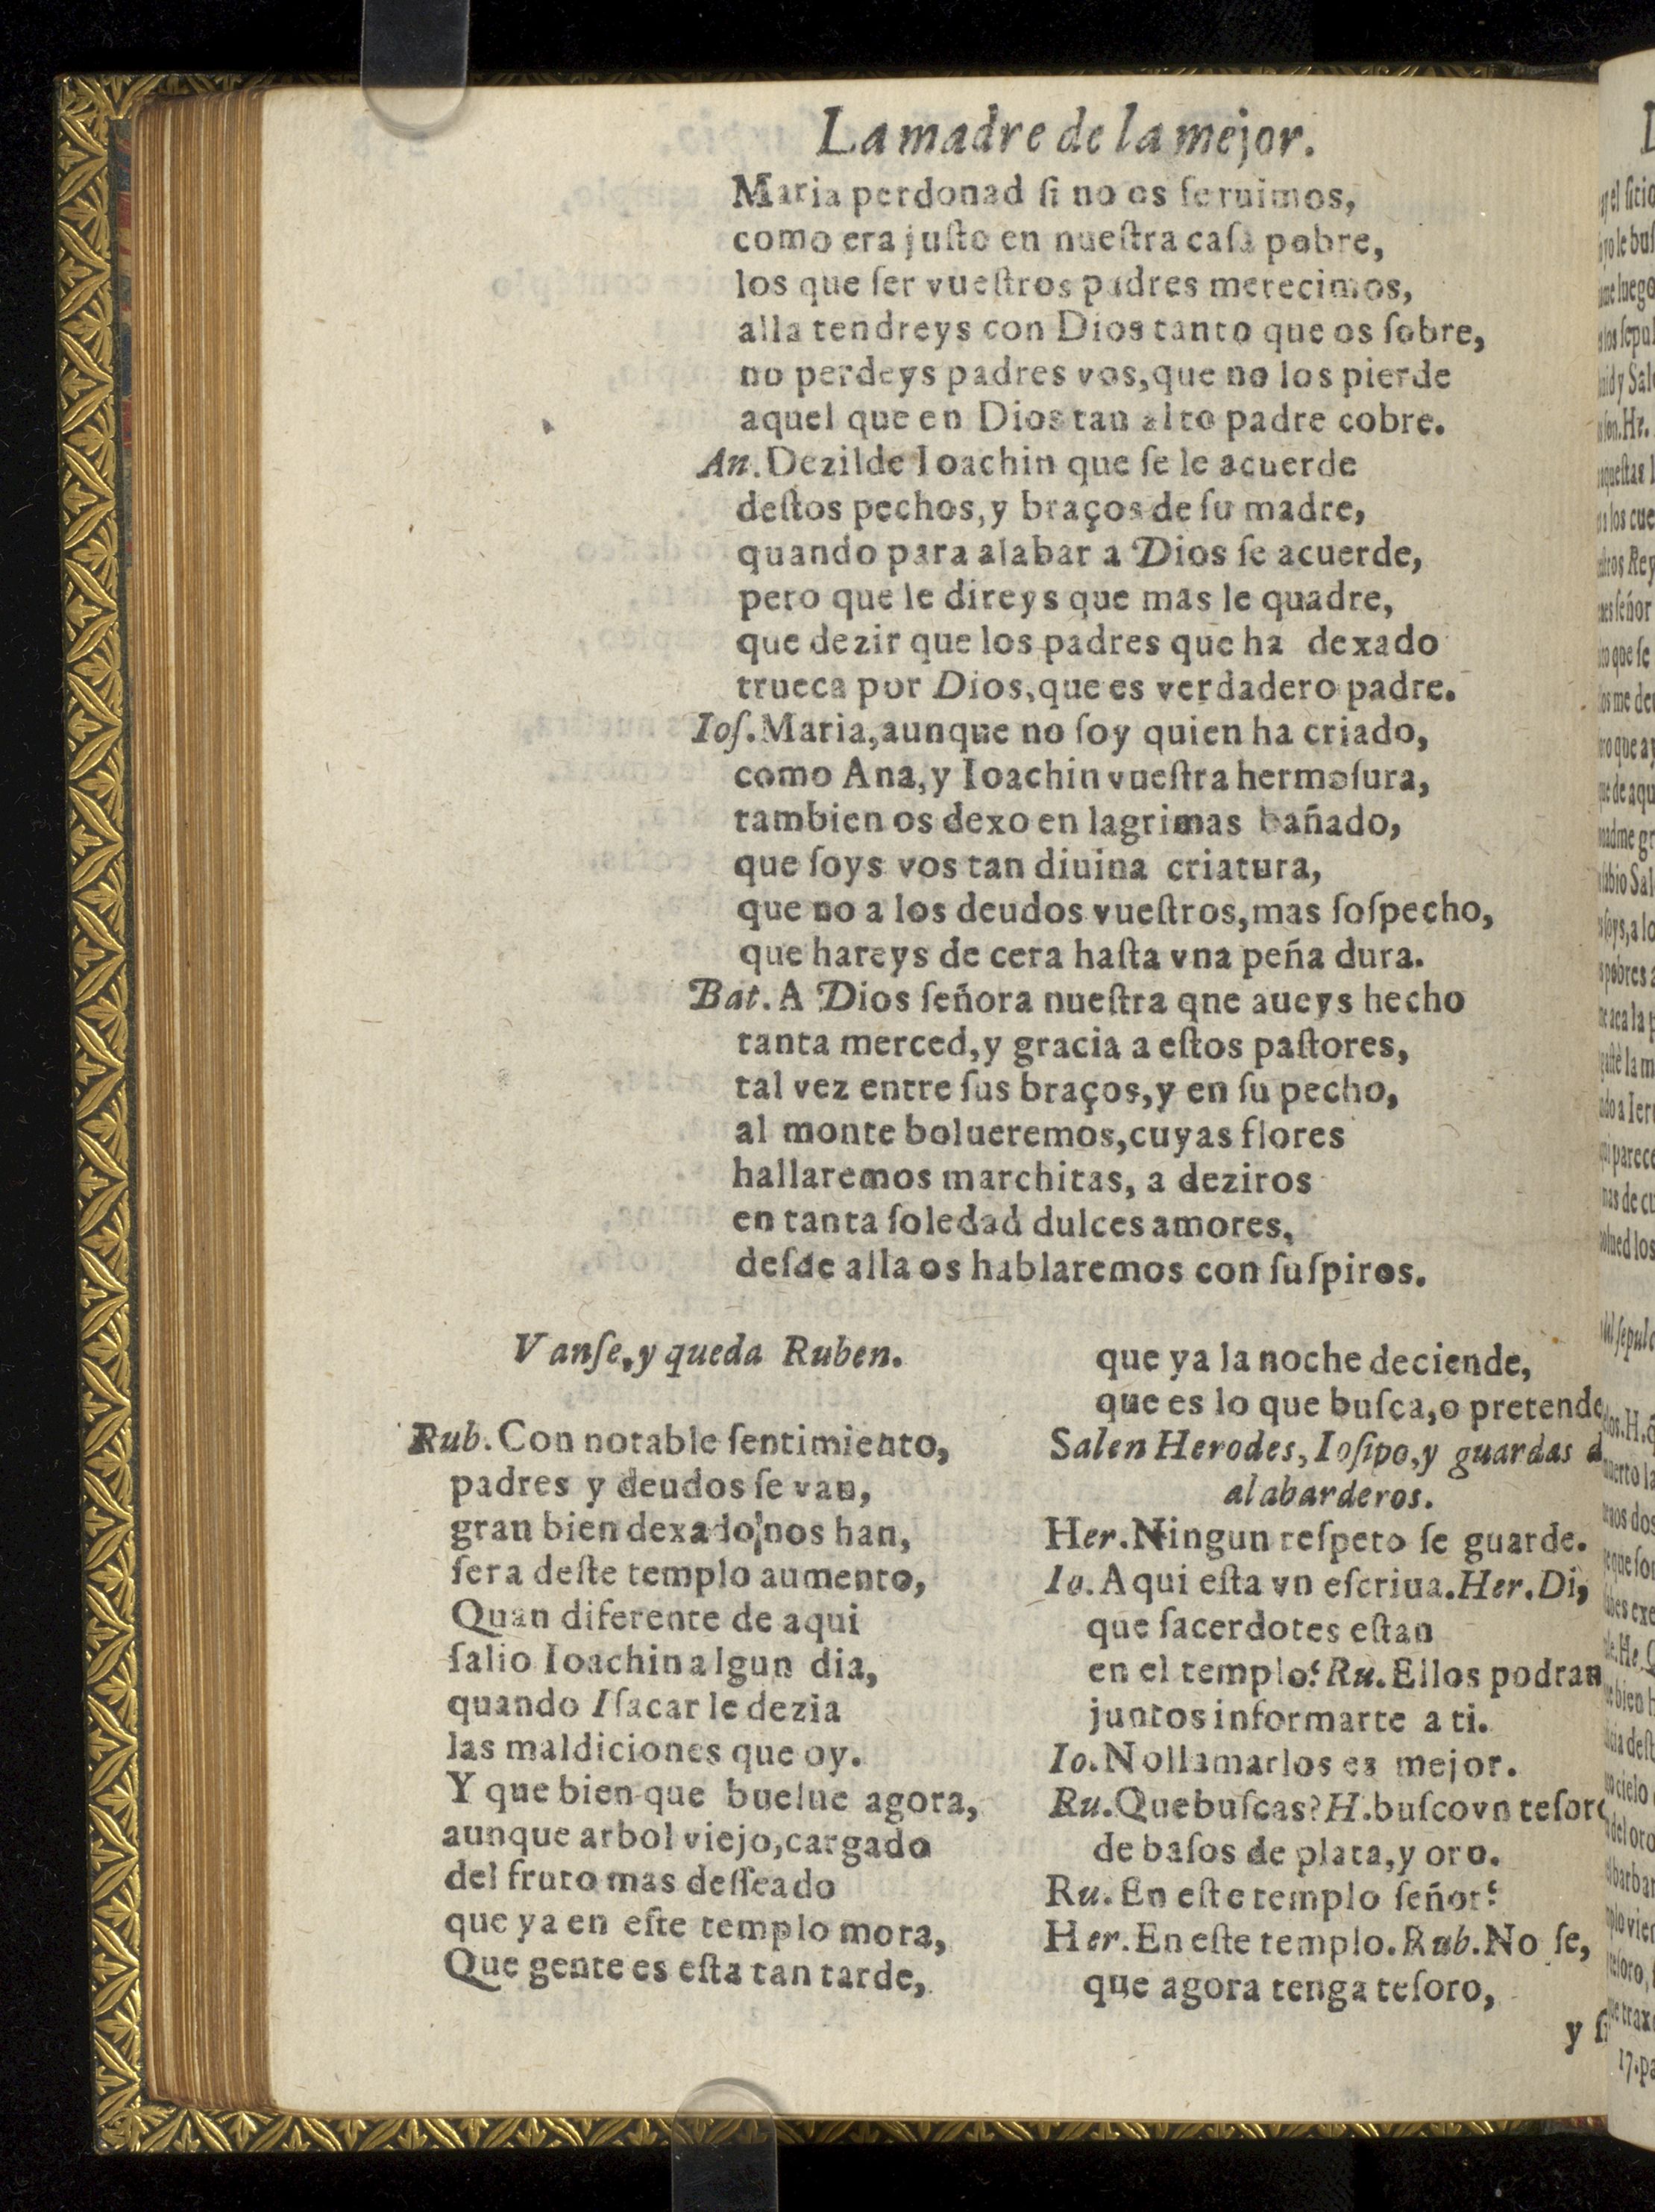 La madre de la mejor.
Maria perdonad ſi no os ſeruimos,
como era juſto en nueſtra caſa pobre,
los que ſer vueſtros padres merecimos,
alla tendreys con Dios tanto que os ſobre,
no perdeys padres vos, que no los pierde
aquel que en Dios tan alto padre cobre.
An. Dezilde Ioachin que ſe le acuerde
deſtos pechos, y braços de ſu madre,
quando para alabar a Dios ſe acuerde,
pero que le direys que mas le quadre,
que dezir que los padres que ha dexado
trueca por Dios, que es verdadero padre.
Ioſ. Maria, aunque no ſoy quien ha criado,
como Ana, y Ioachin vueſtra hermoſura,
tambien os dexo en lagrimas bañado,
que ſoys vos tan diuina criatura,
que no a los deudos vueſtros, mas ſoſpecho,
que hareys de cera haſta vna peña dura.
Bat. A Dios ſeñora nueſtra qne aueys hecho
tanta merced, y gracia a eſtos paſtores,
tal vez entre ſus braços, y en ſu pecho,
al monte bolueremos, cuyas flores
hallaremos marchitas, a deziros
en tanta ſoledad dulces amores,
deſde alla os hablaremos con ſuſpiros.
Vanſe, y queda Ruben.
Rub. Con notable ſentimiento,
padres y deudos ſe van,
gran bien dexado nos han,
ſera deſte templo aumento,
Quan diferente de aqui
ſalio Ioachin algun dia,
quando Iſacar le dezia
las maldiciones que oy.
Y que bien que buelue agora,
aunque arbol viejo, cargado
del fruto mas deſſeado
que ya en eſte templo mora,
Que gente es eſta tan tarde,
que ya la noche deciende,
que es lo que buſca, o pretende
Salen Herodes, Ioſipo, y guardas d
alabarderos.
Her. Ningun reſpeto ſe guarde.
Io. Aqui eſta vn eſcriua. Her. Di,
que ſacerdotes eſtan
en el templo? Ru. Ellos podran
juntos informarte a ti.
Io. No llamarlos es mejor.
Ru. Que buſcas? H. buſco vn teſoro
de baſos de plata, y oro.
Ru. En eſte templo ſeñor?
Her. En eſte templo. Rub. No ſe,
que agora tenga teſoro,
y ſi